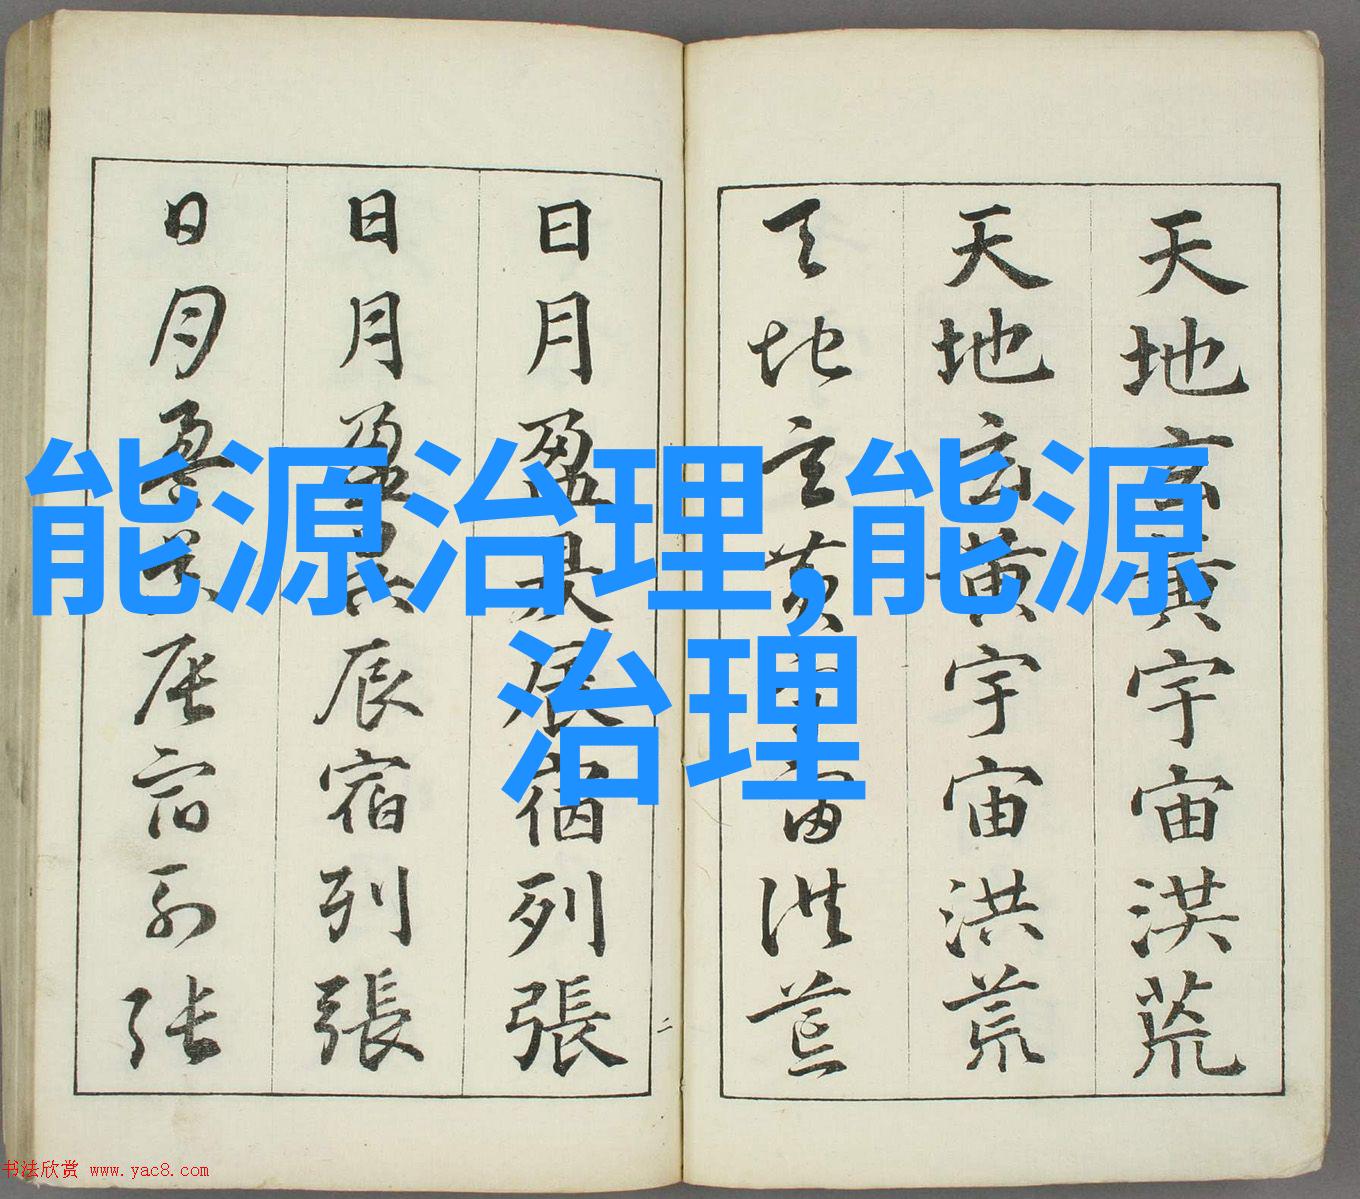 天地玄黃宇宙洪荒
天地玄黃宇宙洪荒
天地玄黃宇宙洪荒
日月盈昃辰宿列張
日月盈昃辰宿列張
日月盈昃辰宿列張
二
能源治理,能源
治理
书法欣赏 www.yac8.com